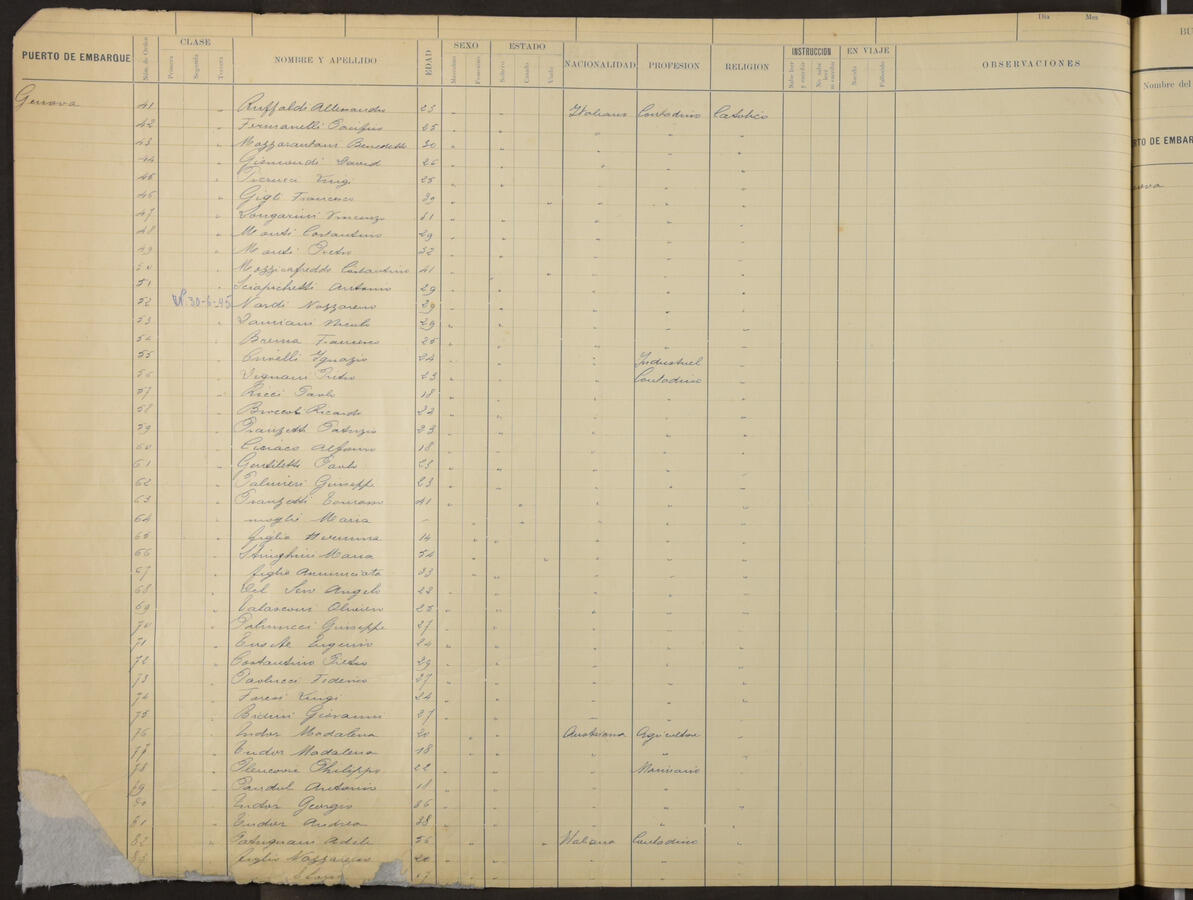 Dia Mes
PUERTO DE EMBARQUE Núm. de Orden CLASE Primera Segunda Tercera NOMBRE Y APELLIDO EDAD SEXO Masculino Femenino ESTADO Soltero Casado Viudo NACIONALIDAD PROFESION RELIGION INSTRUCCION Sabe leer y escribir No sabe leer ni escribir EN VIAJE Nacido Fallecido OBSERVACIONES
Genova 41 " Ruffaldi Allesandro 23 " " Italiano Contadino Catolico
42 " Fermanelli Pacifico 25 " " " " "
43 " Mazzarantani Benedetto 30 " " " " "
44 " Gismondi David 26 " " " " "
45 " Luigi 25 " " " " "
46 " Gigli Francesco 30 " " " " "
47 " Longarini Vincenzo 51 " " " " "
48 " Monti Costantino 29 " " " " "
49 " Monti Pietro 32 " " " " "
50 " Mozzicafreddo Costantino 41 " " " " "
51 " Sciapichetti Antonio 29 " " " " "
52 30-6-45 Nardi Nazzareno 29 " " " " "
53 " Damiani Nicola 29 " " " " "
54 " Brenna Francesco 25 " " " " "
55 " Crivelli Ignazio 24 " " " Industriel "
56 " Vignani Pietro 23 " " " Contadino "
57 " Ricci Paolo 18 " " " " "
58 " Broccoli Ricardo 22 " " " " "
59 " Franzetti Patrizio 23 " " " " "
60 " Ciriaco Alfonso 18 " " " " "
61 " Gentiletti Paolo 23 " " " " "
62 " Palmieri Giuseppe 23 " " " " "
63 " Franzetti 41 " " " " "
64 " moglie Maria " " " " " "
65 " figlia 14 " " " " "
66 " Maria 54 " " " " "
67 " figlia Annunciata 33 " " " " "
68 " Del Angelo 22 " " " " "
69 " Oliviero 25 " " " " "
70 " Palmucci Giuseppe 27 " " " " "
71 " Eugenio 24 " " " " "
72 " Costantino Pietro 29 " " " " "
73 " Paolucci Federico 27 " " " " "
74 " Faresi Luigi 24 " " " " "
75 " Giovanni 27 " " " " "
76 " Endor Madalena 20 " " Austriana Agricultor "
77 " Endor Madalena 18 " " " " "
78 " Philippo 22 " " " Marinario "
79 " Antonio 18 " " " " "
80 " Endor Georgio 36 " " " " "
81 " Endor Andrea 38 " " " " "
82 " Adele 56 " " Italiana Contadino "
83 figlio Nazzareno 20 " " " " "
17
BU
Nombre del
TO DE EMBAR
nova